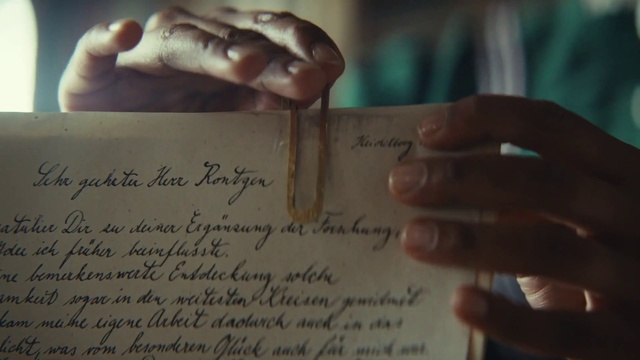 Heidelberg
Sehr geehrter Herr Rontgen
Dir zu deiner Ergänzung der Forschung,
die ich früher beeinflusste.
bemerkenswerte Entdeckung solche
sogar in den weitesten Kreisen gewidmet
meine eigene Arbeit dadurch auch in das
was vom besonderen Glück auch für mich war